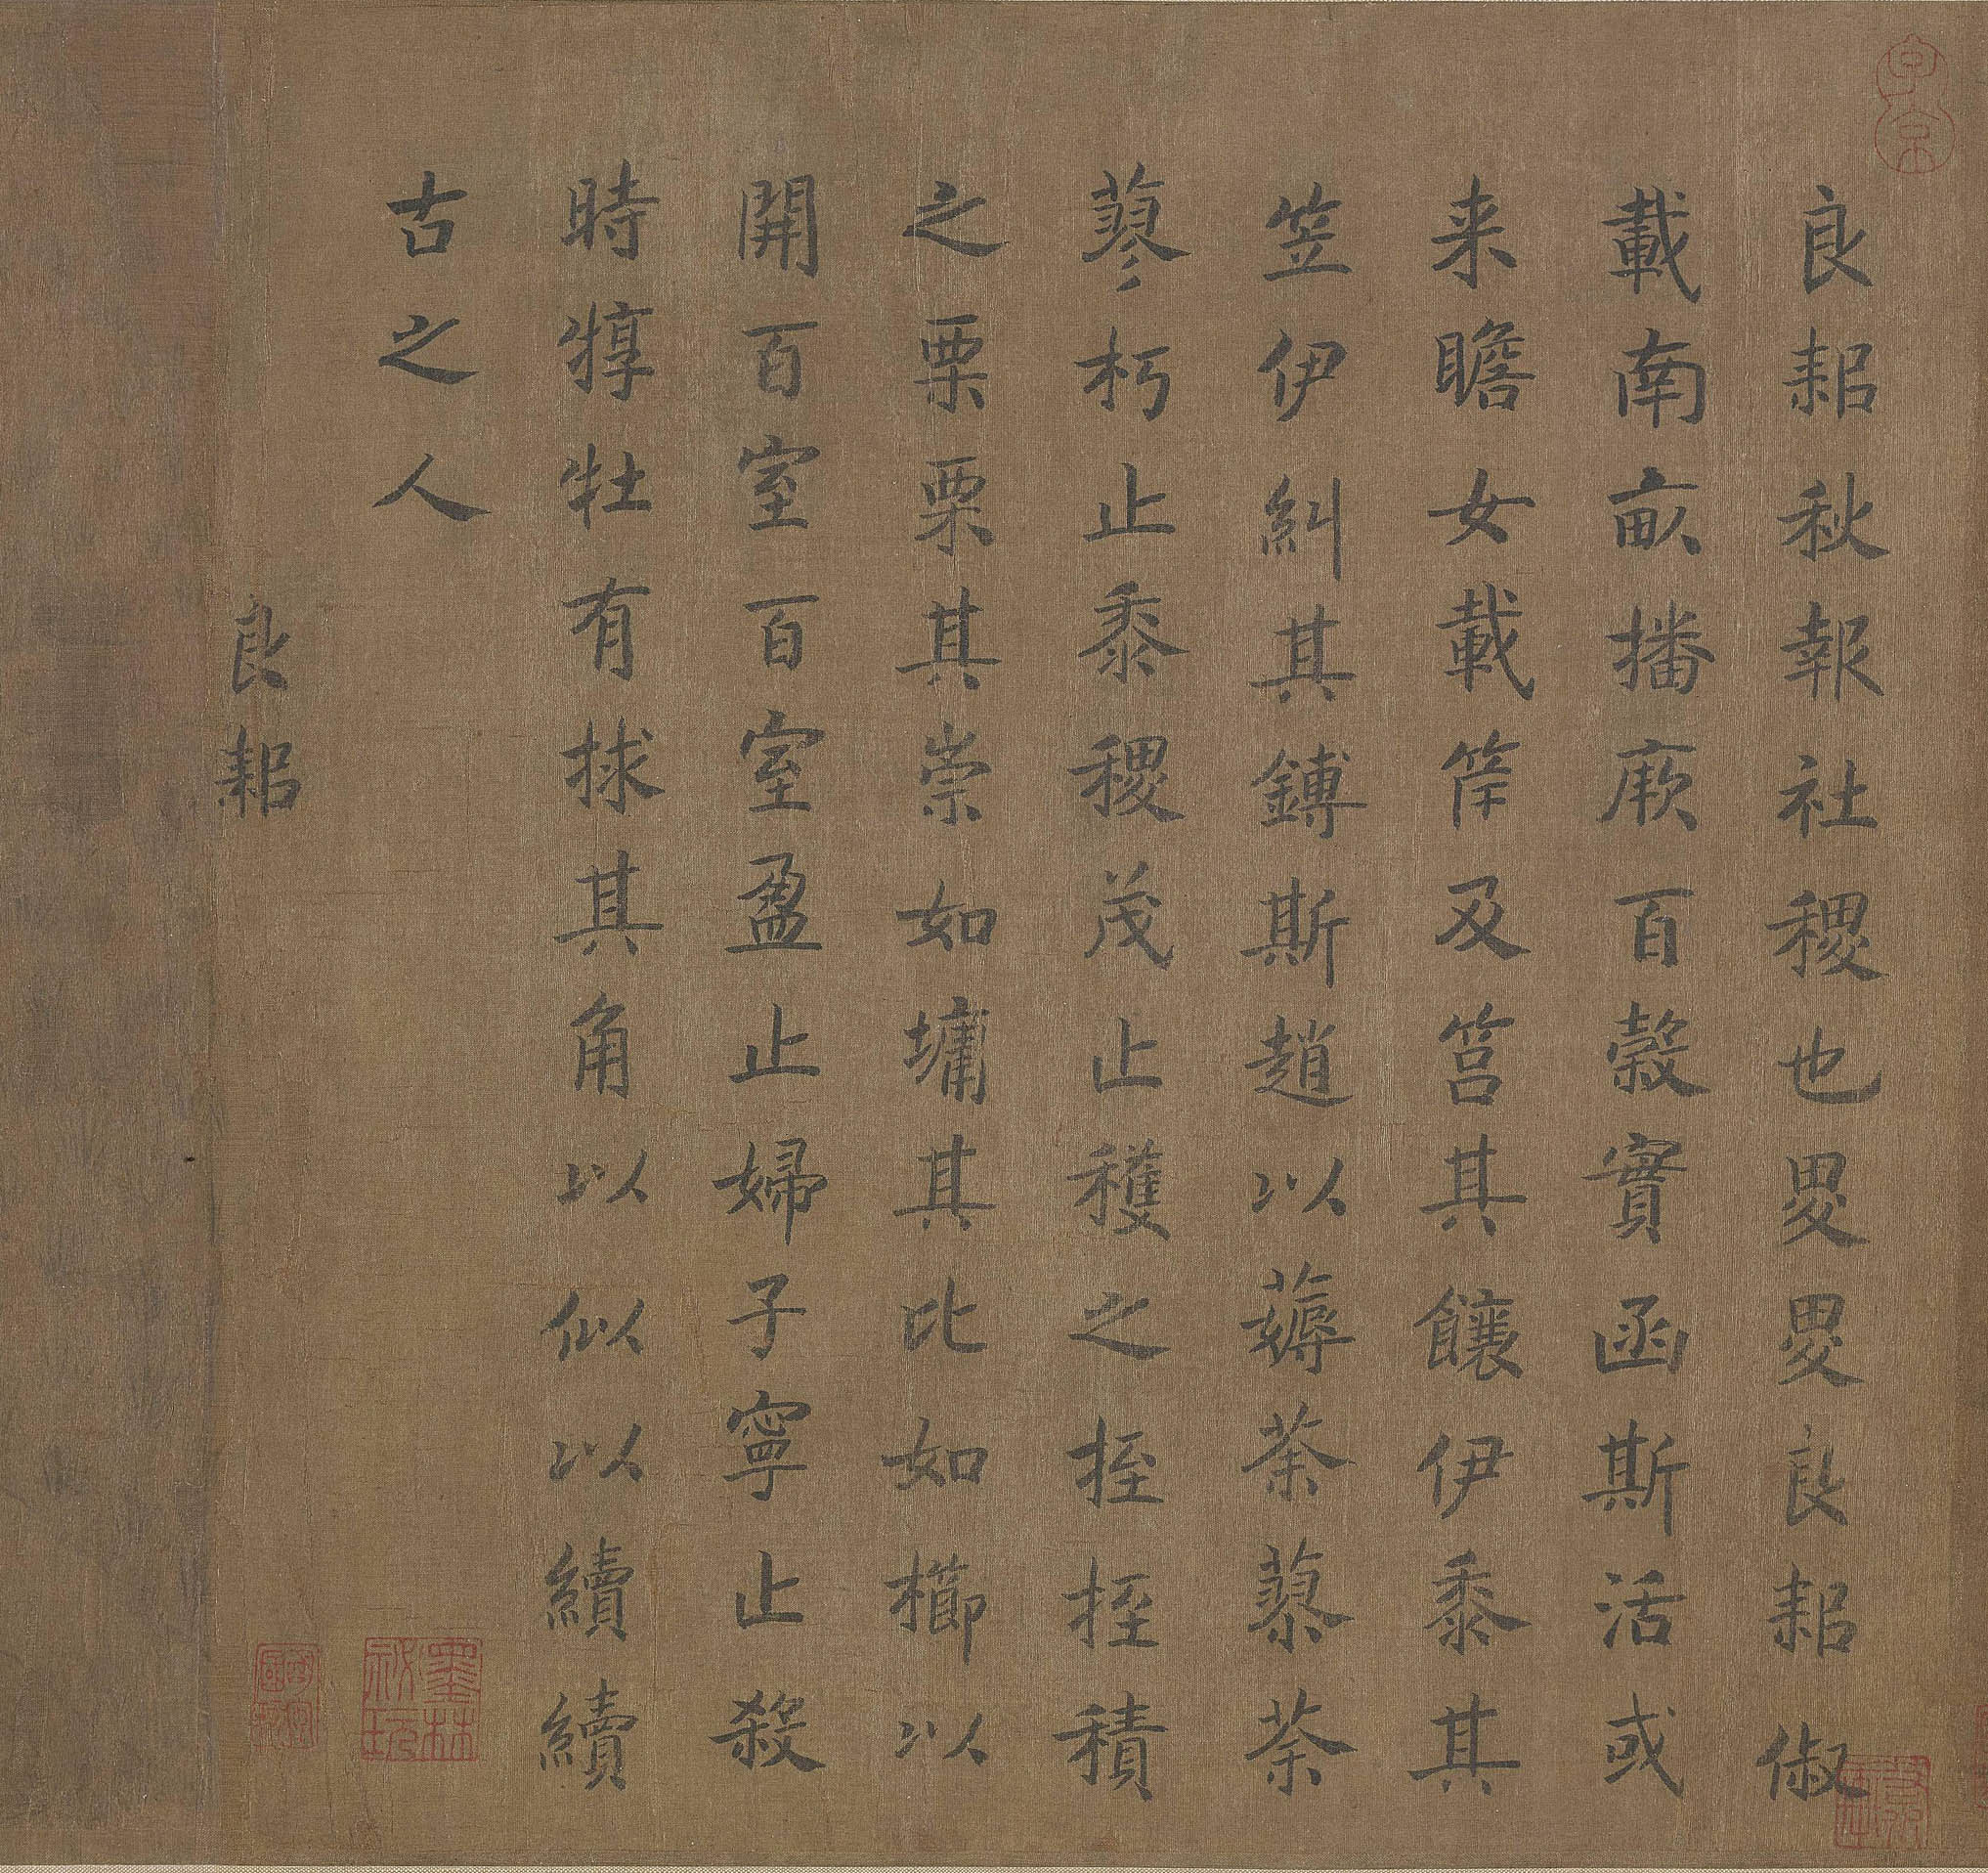 子京
良耜秋報社稷也畟畟良耜俶
載南畝播厥百穀實函斯活或
来瞻女載筐及筥其饟伊黍其
笠伊糾其鎛斯趙以薅荼蓼荼
蓼朽止黍稷茂止穫之挃挃積
之栗栗其崇如墉其比如櫛以
開百室百室盈止婦子寧止殺
時犉牡有捄其角以似以續續
古之人
墨林
祕玩
良耜